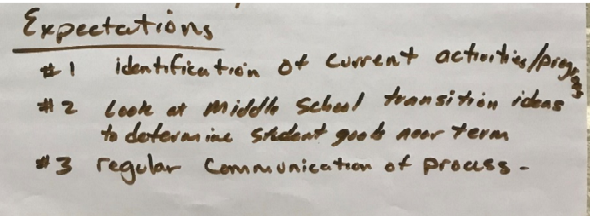 Expectations
#1 identification of current activities/progress
#2 Look at Middle School transition ideas
to determine student goals near term
#3 regular communication of process.